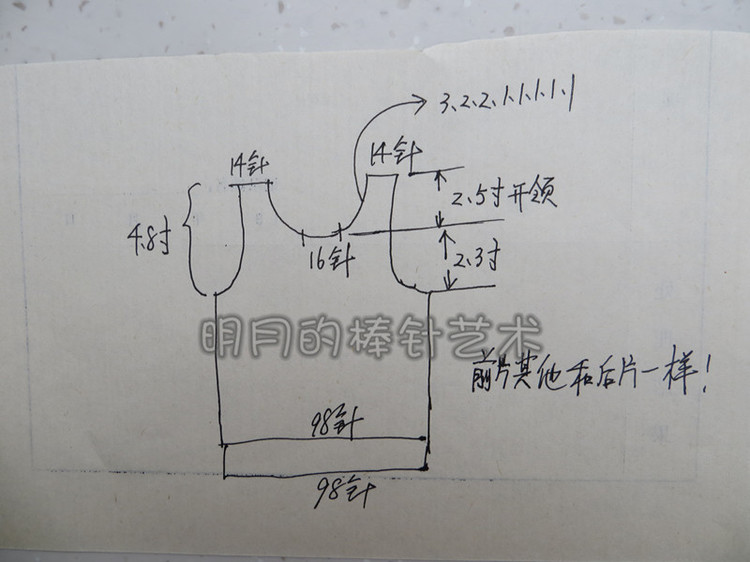 3.2.2.1.1.1.1.1
14针
14针
2.5寸开领
4.8寸
16针
2.3寸
明月的棒针艺术
前片其他和后片一样!
98针
98针